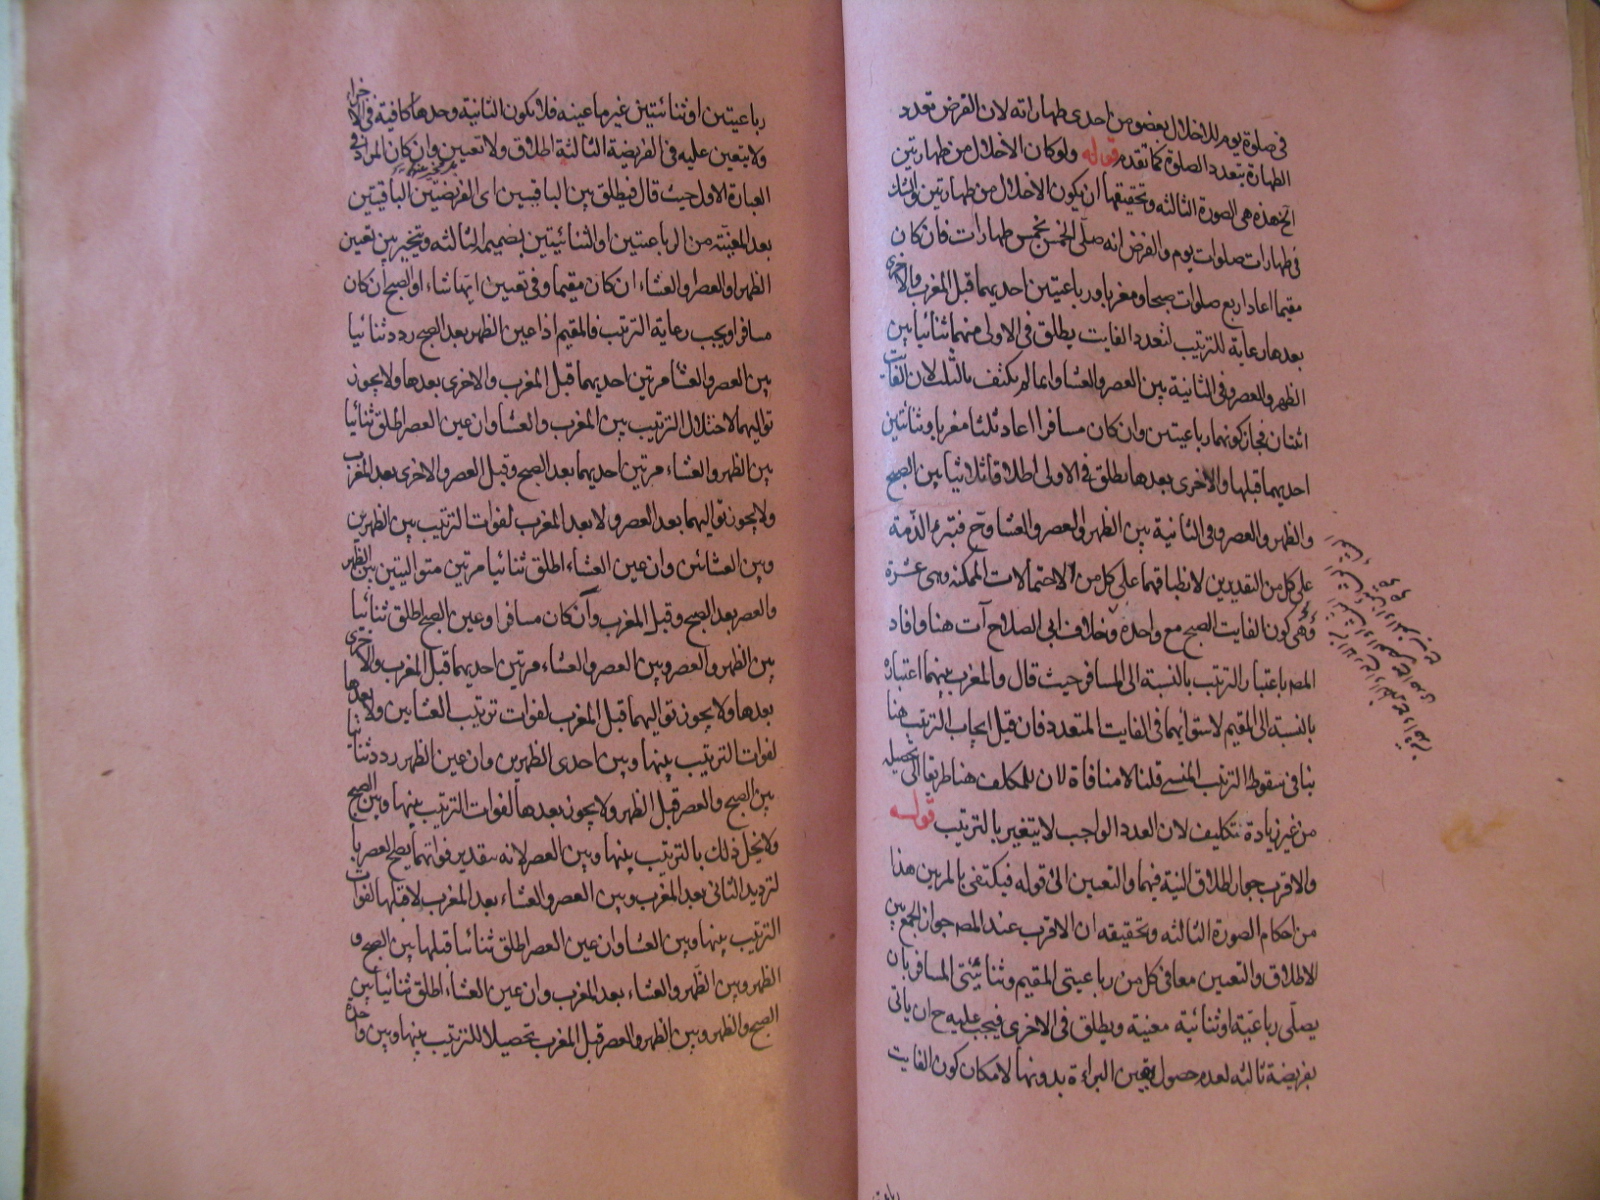 في صلوة يوم للاخلال بعضو من احدى طهاراته لان الفرض تعدد
الطهارة بتعدد الصلوة كما تقدم قوله ولو كان الاخلال من طهارتين
الخ هذه هي الصورة الثالثه وتحقيقها ان يكون الاخلال من طهارتين والشك
في طهارات صلوات يوم والفرض انه صلى الخمس بخمس طهارات فان كان
مقيما اعاد اربع صلوات صبحا ومغربا ورباعيتين احديهما قبل المغرب والاخرى
بعدها رعاية للترتيب لتعدد الفايت يطلق في الاولى منهما ثنائيا بين
الظهر والعصر وفي الثانية بين العصر والعشا وانما لم يكتف بالثلث لان الفايت
اثنتان فجاز كونهما رباعيتين وان كان مسافرا اعاد ثلثا مغربا وثنائتين
احديهما قبلها والاخرى بعدها يطلق في الاولى اطلاقا ثلاثيا بين الصبح
والظهر والعصر وفي الثانية بين الظهر والعصر والعشا وح فتبرء الذمة
على كل من التقديرين لانطباقهما على كل من الاحتمالات الممكنه وهي عشرة
وهى كون الفايت الصبح مع واحدة وخلاف ابي الصلاح آت هنا وافاد
المصـ باعتبار الترتيب بالنسبة الى المسافر حيث قال والمغرب بينهما اعتباره
بالنسبة الى المقيم لاستوائهما في الفايت المتعدد فان قيل ايجاب الترتيب هنا
ينافي سقوط الترتيب المنسي قلنا لا منافاة لان للمكلف هنا طريقا الى تحصيله
من غير زيادة تكليف لان العدد الواجب لا يتغير بالترتيب قوله
والاقرب جواز اطلاق النية فيهما والتعيين الى قوله فيكتفى بالمرتين هذا
من احكام الصورة الثالثه وتحقيقه ان الاقرب عند المصـ جواز الجمع بين
الاطلاق والتعيين معا في كل من رباعيتي المقيم وثنائيتي المسافر بان
يصلى رباعية او ثنائية معنية ويطلق في الاخرى فيجب عليه ح ان ياتى
بفريضة ثالثه لعدم حصول يقين البراءة بدونها لامكان كون الفايت
رباعيتين او ثنائيتين غير ما عينه فلا تكون الثانية وحدها كافية في الاجزاء
ولا يتعين عليه في الفريضة الثالثة اطلاق ولا تعيين وان كان المراد في
العبارة الاول حيث قال فيطلق بين الباقيين اى الفريضتين الباقيتين
بعد المعينة من الرباعيتين او الثنائيتين بضميمة الثالثه ويتخير بين تعيين
الظهر او العصر او العشاء ان كان مقيما وفي تعيين ايها شاء او الصبح ان كان
مسافرا ويجب رعاية الترتيب فالمقيم اذا عين الظهر بعد الصبح ردد ثنائيا
بين العصر والعشا مرتين احديهما قبل المغرب والاخرى بعدها ولا يجوز
تواليهما لاختلال الترتيب بين المغرب والعشا وان عين العصر اطلق ثنائيا
بين الظهر والعشاء مرتين احديهما بعد الصبح وقبل العصر والاخرى بعد المغرب
ولا يجوز تواليهما بعد العصر ولا بعد المغرب لفوات الترتيب بين الظهرين
وبين العشائين وان عين العشاء اطلق ثنائيا مرتين متواليتين بين الظهر
والعصر بعد الصبح وقبل المغرب وان كان مسافرا وعين الصبح اطلق ثنائيا
بين الظهر والعصر وبين العصر والعشاء مرتين احديهما قبل المغرب والاخرى
بعدها ولا يجوز تواليهما قبل المغرب لفوات ترتيب العشايين ولا بعدها
لفوات الترتيب بينها وبين احدى الظهرين وان عين الظهر ردد ثنائيا
بين الصبح والعصر قبل الظهر ولا يجوز بعدها لفوات الترتيب بينها وبين الصبح
ولا يخل ذلك بالترتيب بينها وبين العصر لانه بتقدير فواتهما يصلح العصر با
لترديد الثاني بعد المغرب وبين العصر والعشاء بعد المغرب لا قبلها لفوات
الترتيب بينها وبين العشا وان عين العصر اطلق ثنائيا قبلها بين الصبح و
الظهر وبين الظهر والعشاء بعد المغرب وان عين العشاء اطلق ثنائيا بين
الصبح والظهر وبين الظهر والعصر قبل المغرب تحصيلا للترتيب بينها وبين واحدة